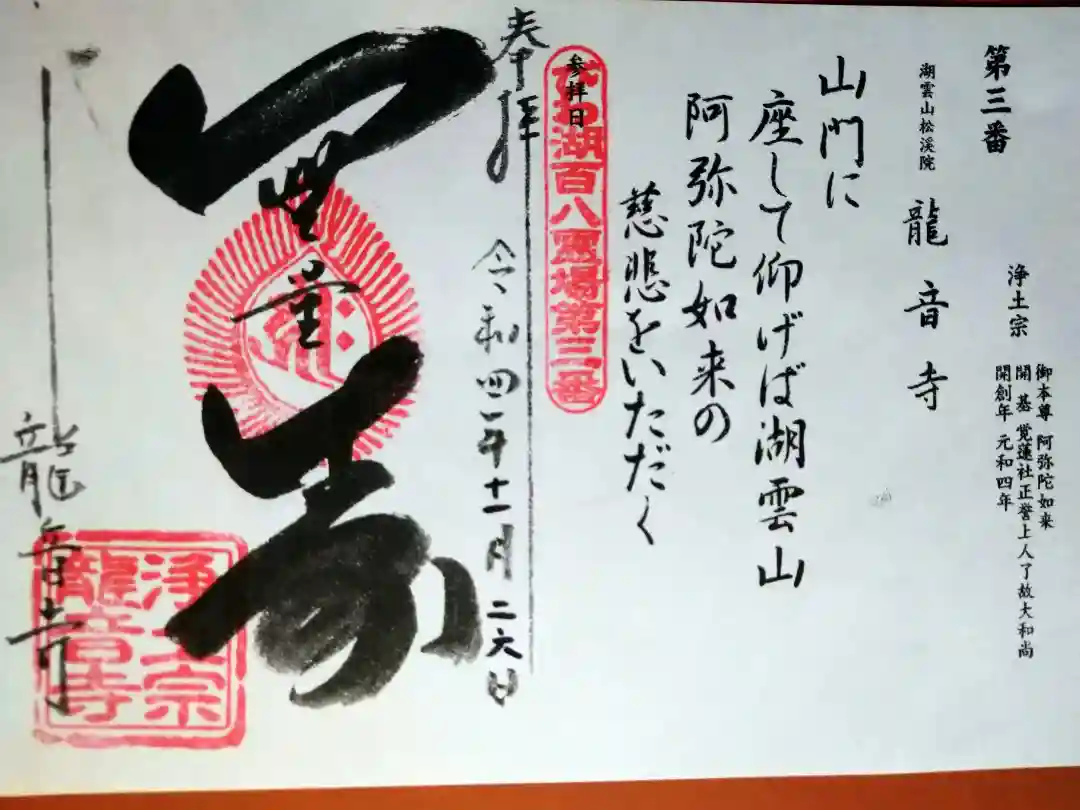 第三番
浄土宗
御本尊 阿弥陀如来
開基 覚蓮社正誉上人了故大和尚
開創年 元和四年
湖雲山松溪院
龍音寺
山門に
座して仰げば湖雲山
阿弥陀如来の
慈悲をいただく
参拝日
びわ湖百八霊場第三番
奉拝
令和四年十一月二六日
無量寿
龍音寺
浄土宗
龍音寺